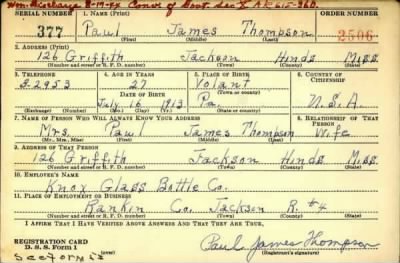 Hon. Discharge 8-17-44 Conv. of Govt. Sec. X AR 615-360.
SERIAL NUMBER 1. NAME (Print) ORDER NUMBER
377 Paul James Thompson 2506
(First) (Middle) (Last)
2. ADDRESS (Print)
126 Griffith Jackson Hinds Miss
(Number and street or R. F. D. number) (Town) (County) (State)
3. TELEPHONE 4. AGE IN YEARS 5. PLACE OF BIRTH 6. COUNTRY OF CITIZENSHIP
3-2953 27 Volant
DATE OF BIRTH (Town or county)
July 16 1913 Pa. U.S.A.
(Exchange) (Number) (Mo.) (Day) (Yr.) (State or country)
7. NAME OF PERSON WHO WILL ALWAYS KNOW YOUR ADDRESS 8. RELATIONSHIP OF THAT PERSON
Mrs. Paul James Thompson Wife
(Mr., Mrs., Miss) (First) (Middle) (Last)
9. ADDRESS OF THAT PERSON
126 Griffith Jackson Hinds Miss
(Number and street or R. F. D. number) (Town) (County) (State)
10. EMPLOYER'S NAME
Knox Glass Bottle Co.
11. PLACE OF EMPLOYMENT OR BUSINESS
Rankin Co. Jackson R. #4
(Number and street or R. F. D. number) (Town) (County) (State)
I AFFIRM THAT I HAVE VERIFIED ABOVE ANSWERS AND THAT THEY ARE TRUE.
REGISTRATION CARD
D. S. S. Form 1 Paul James Thompson
(Registrant's signature)
See form 53